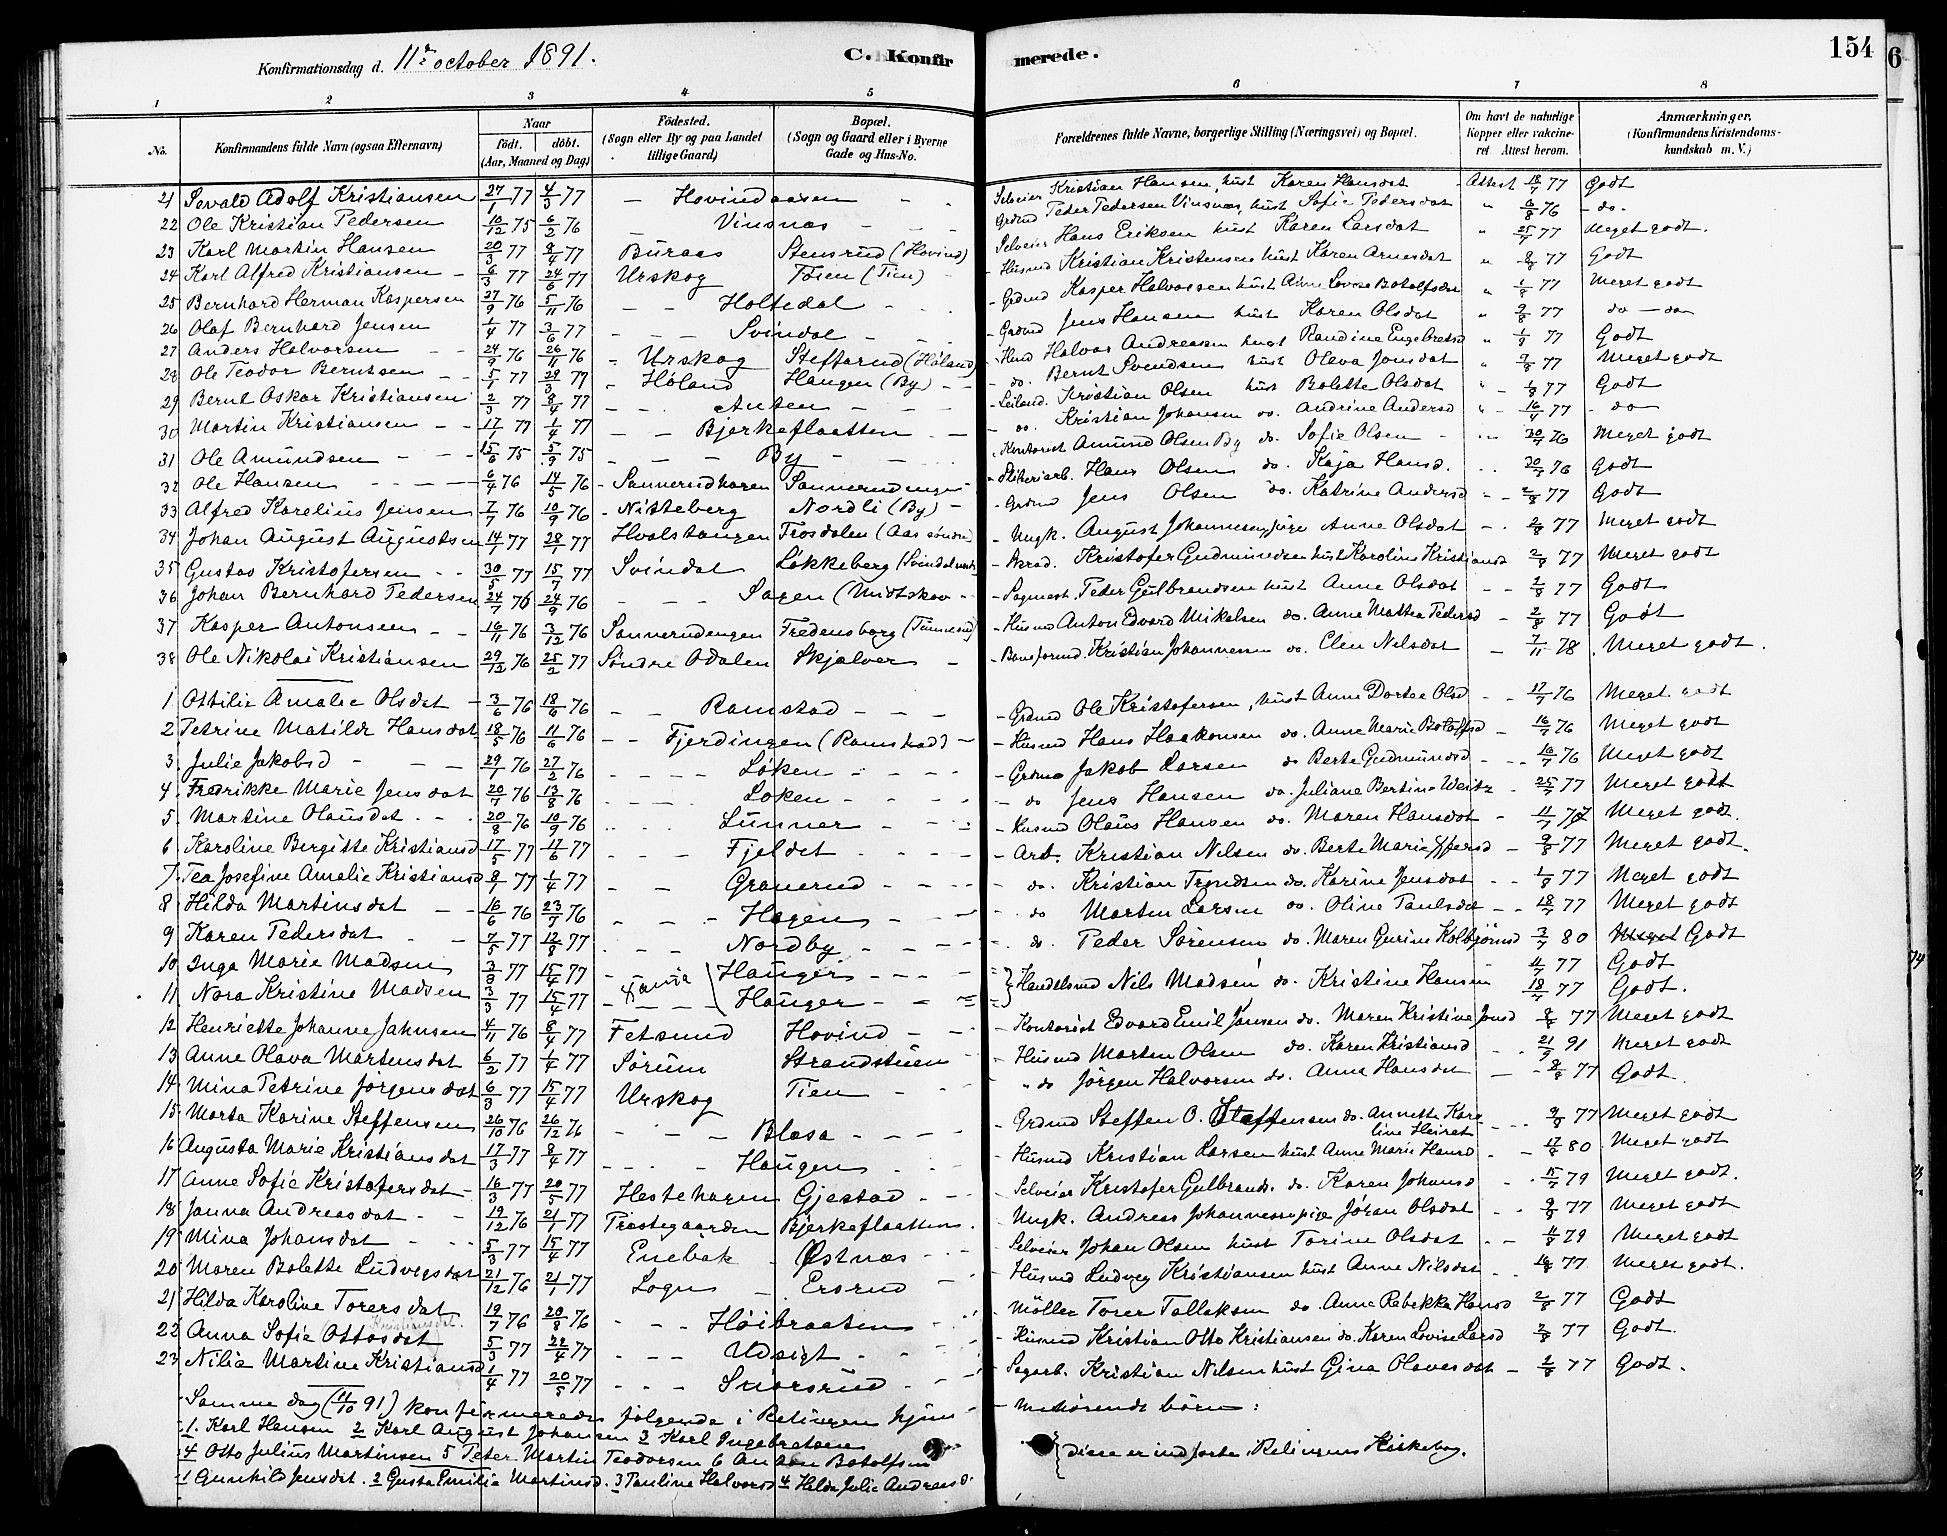 Konfirmationsdag d. 11te october 1891.
C. Konfirmerede.
154
1 2 3 4 5 6 7 8
No. Konfirmandens fulde Navn (ogsaa Efternavn) Naar Födt. döbt. (Aar, Maaned og Dag) Födested. (Sogn eller By og paa Landet tillige Gaard) Bopæl. (Sogn og Gaard eller i Byerne Gade og Hus-No. Forældrenes fulde Navne, borgerlige Stilling (Næringsvei) og Bopæl. Om havt de naturlige Kopper eller vakcineret Attest herom. Anmærkninger. (Konfirmandens Kristendomskundskab m. V.)
21 Sevald Adolf Kristiansen 27/1 77 4/3 77 – Hovindaasen Selveier Kristian Hansen, hust Karen Hansdat Attest 18/7 77 Godt
22 Ole Kristian Pedersen 10/12 75 6/2 76 – Vinsnæs Grdmd Peder Pedersen Vinsnæs, hust Sofie Pedersdat " 6/8 76 – do –
23 Karl Martin Hansen 20/3 77 8/4 77 Buraas Stensrud (Hovind) Selveier Hans Eriksen hust Karen Larsdat " 25/7 77 Meget godt.
24 Karl Alfred Kristiansen 6/3 77 24/6 77 Urskog Tosen (Tien) Husmd Kristian Kristensen hust Karen Arnesdat " 8/8 77 Godt
25 Bernhard Herman Kaspersen 27/9 76 5/11 76 Holtedal Grdmd Kasper Halvorsen hust Anne Lovise Botolfsdat " 1/8 77 Meget godt
26 Olaf Bernhard Jensen 1/4 77 3/6 77 Svindal Grdmd Jens Hansen hust Karen Olsdat " 9/8 77 do – do
27 Anders Halvorsen 24/9 76 26/11 76 Urskog Steffarud (Høland) Husmd Halvor Andreasen hust Randine Engebretsd " 1/9 77 Godt
28 Ole Teodor Berntsen 5/1 77 29/3 77 Høland Hauger (By) do. Bernt Svendsen hust Oleva Jonsdat " 9/8 77 Meget godt
29 Bernt Oskar Kristiansen 2/3 77 8/4 77 Anten Leiland. Kristian Olsen hust Bolette Olsdat " 1/8 77 Godt
30 Martin Kristiansen 17/1 77 1/4 77 Bjerkeflaatten do. Kristian Johansen do. Andrine Andersd " 16/4 77 do
31 Ole Amundsen 15/6 75 5/9 75 By Kontorist Amund Olsen By do. Sofie Olsen 20/7 76 Meget godt
32 Ole Hansen 6/4 76 14/5 76 Sannerudhagen Sannerudengen Hans Olsen do. Kaja Hansd. 20/7 76 Godt
33 Alfred Karelius Jensen 7/7 76 10/9 76 Nitteberg Nordli (By) Grdmd Jens Olsen do. Katrine Andersd 2/8 77 Godt
34 Johan August Augustsen 14/1 77 28/1 77 Hvalstangen Frosdalen (Aas søndre) Ungk. August Johannesen, pige Anne Olsdat 2/8 77 Meget godt
35 Gustav Kristofersen 30/5 77 15/7 77 Svindal Løkkeberg (Svindal nordre) Kristofer Gudmundsen hust Karoline Kristiansd 2/8 77 Meget godt
36 Johan Bernhard Pedersen 24/7 76 24/9 76 Sagen (Midtskov Sagmest. Peder Gulbrandsen hust Anne Olsdat 2/8 77 Godt
37 Kasper Antonsen 16/11 76 3/12 76 Sannerudengen Fredensborg (Tunnerud) Husmd Anton Edvard Mikalsen do. Anne Mathea Pedersd 2/8 77 Godt
38 Ole Nikolai Kristiansen 29/12 76 25/2 77 Søndre Odalen Skjalver Baneformd. Kristian Johannesen do. Elen Nilsdat 7/11 78. Meget godt.
1 Ottilie Amalie Olsdat 3/6 76 18/6 76 Ramstad Grdmd Ole Kristofersen, hust Anne Dortea Olsd 17/7 76 Meget godt
2 Petrine Matilde Hansdat 18/5 76 11/6 76 Fjerdingen (Ramstad) Husmd Hans Haakonsen do. Anne Marie Botolfsd 16/7 76 Meget godt
3 Julie Jakobsd 29/1 76 27/2 76 Løken Grdmd Jakob Larsen do Berte Gudmundsd 16/7 76 Meget godt
4 Fredrikke Marie Jensdat 20/7 76 13/8 76 Løken do Jens Hansen do. Juliane Bertine Weitz 25/7 77 Meget godt
5 Martine Olausdat 20/8 76 10/9 76 Lunner Husmd Olaus Hansen do. Maren Hansdat 11/7 77 Meget godt.
6 Karoline Birgitte Kristiansd 17/5 77 17/6 77 Fjeldet Arb. Kristian Nilsen do. Berte Marie 9/8 77 Meget godt.
7 Tea Josefine Amalie Kristiansd 8/1 77 1/4 77 Granerud do. Kristian Trondsen do. Karine Jensdat 1/8 77 Meget godt
8 Hilda Martinsdat 16/6 76 23/7 76 Hagen do Martin Larsen do. Oline Paulsdat 18/7 77 Meget godt
9 Karen Pedersdat 7/5 77 12/8 77 Nordby do. Peder Sørensen do. Maren Gurine Kolbjørnsd 3/7 80 Meget Godt
10 Inga Marie Madsen 3/3 77 15/4 77 Hauger Handelsmd Nils Madsen do. Kristine Hansen 11/7 77 Godt
11 Nora Kristine Madsen 3/3 77 15/4 77 Hauger 18/7 77 Godt.
12 Henriette Johanne Jahnsen 4/11 76 8/4 77 Fetsund Hovind Kontorist Edvard Emil Jansen do. Maren Kristine Jonsd 8/8 77 Meget godt
13 Anne Olava Martinsdat 6/2 77 1/4 77 Sørum Strandstuen Husmd Morten Olsen do. Karen Kristiansd 21/9 91 Meget godt
14 Mina Petrine Jørgensdat 6/3 77 15/4 77 Urskog Tien " do Jørgen Halvorsen do. Anne Hansdat 8/8 77 Godt.
15 Marta Karine Steffensen 26/10 76 26/12 76 Blæsa Grdmd Steffen O. Steffensen do. Annette Karoline Heiret 9/8 77 Meget godt
16 Augusta Marie Kristiansdat 17/3 77 8/4 77 Haugen Husmd Kristian Larsen hust Anne Marie Hansd 17/8 80 Meget godt
17 Anne Sofie Kristofersdat 16/3 77 20/5 77 Hestehagen Gjestad Selveier Kristofer Gulbrands. do. Karen Johansd 15/7 79 Meget godt.
18 Janna Andreasdat 19/12 76 21/1 77 Prestegaarden Bjerkeflaatten. Ungk. Andreas Johannessen pige Jøran Olsdat 9/8 77 Meget godt
19 Mina Johansdat 5/3 77 15/4 77 Enebak Østnæs Selveier Johan Olsen hust Torine Olsdat 11/8 79 Meget godt
20 Maren Bolette Ludvigsdat 21/12 76 21/1 77 Sogn Ersrud Husmd Ludvig Kristiansen hust Anne Nilsdat 16/8 77 Meget godt.
21 Hilda Karoline Torersdat 19/7 76 20/8 76 Høibraaten Møller Torer Tallaksen do. Anne Rebekka Hansd 2/8 77 Godt
Kristiansdat.
22 Anna Sofie Ottosdat 5/1 77 22/4 77 Udsigt Husmd Kristian Otto Kristiansen do. Karen Lovise Larsd 2/8 77 Godt.
23 Nilia Martine Kristiansd 1/4 77 20/5 77 Snorsrud Sagarb. Kristian Nilsen hust Gina Olavesdat 2/8 77 Godt.
Samme dag (11/10 91) konfirmeredes følgende i Relingen hjemmehørende börn:
1. Karl Hansen 2 Karl August Johansen 3 Karl Ingebretsen
4 Otto Julius Martinsen 5 Peter Martin Teodorsen 6 Anton Botolfsen
1 Gunhild Jensdat. 2 Gusta Emilie Martinsd. 3 Pauline Halvorsd 4 Hilda Julie Andreasd.
Disse er indførte i Relingens Kirkebog.